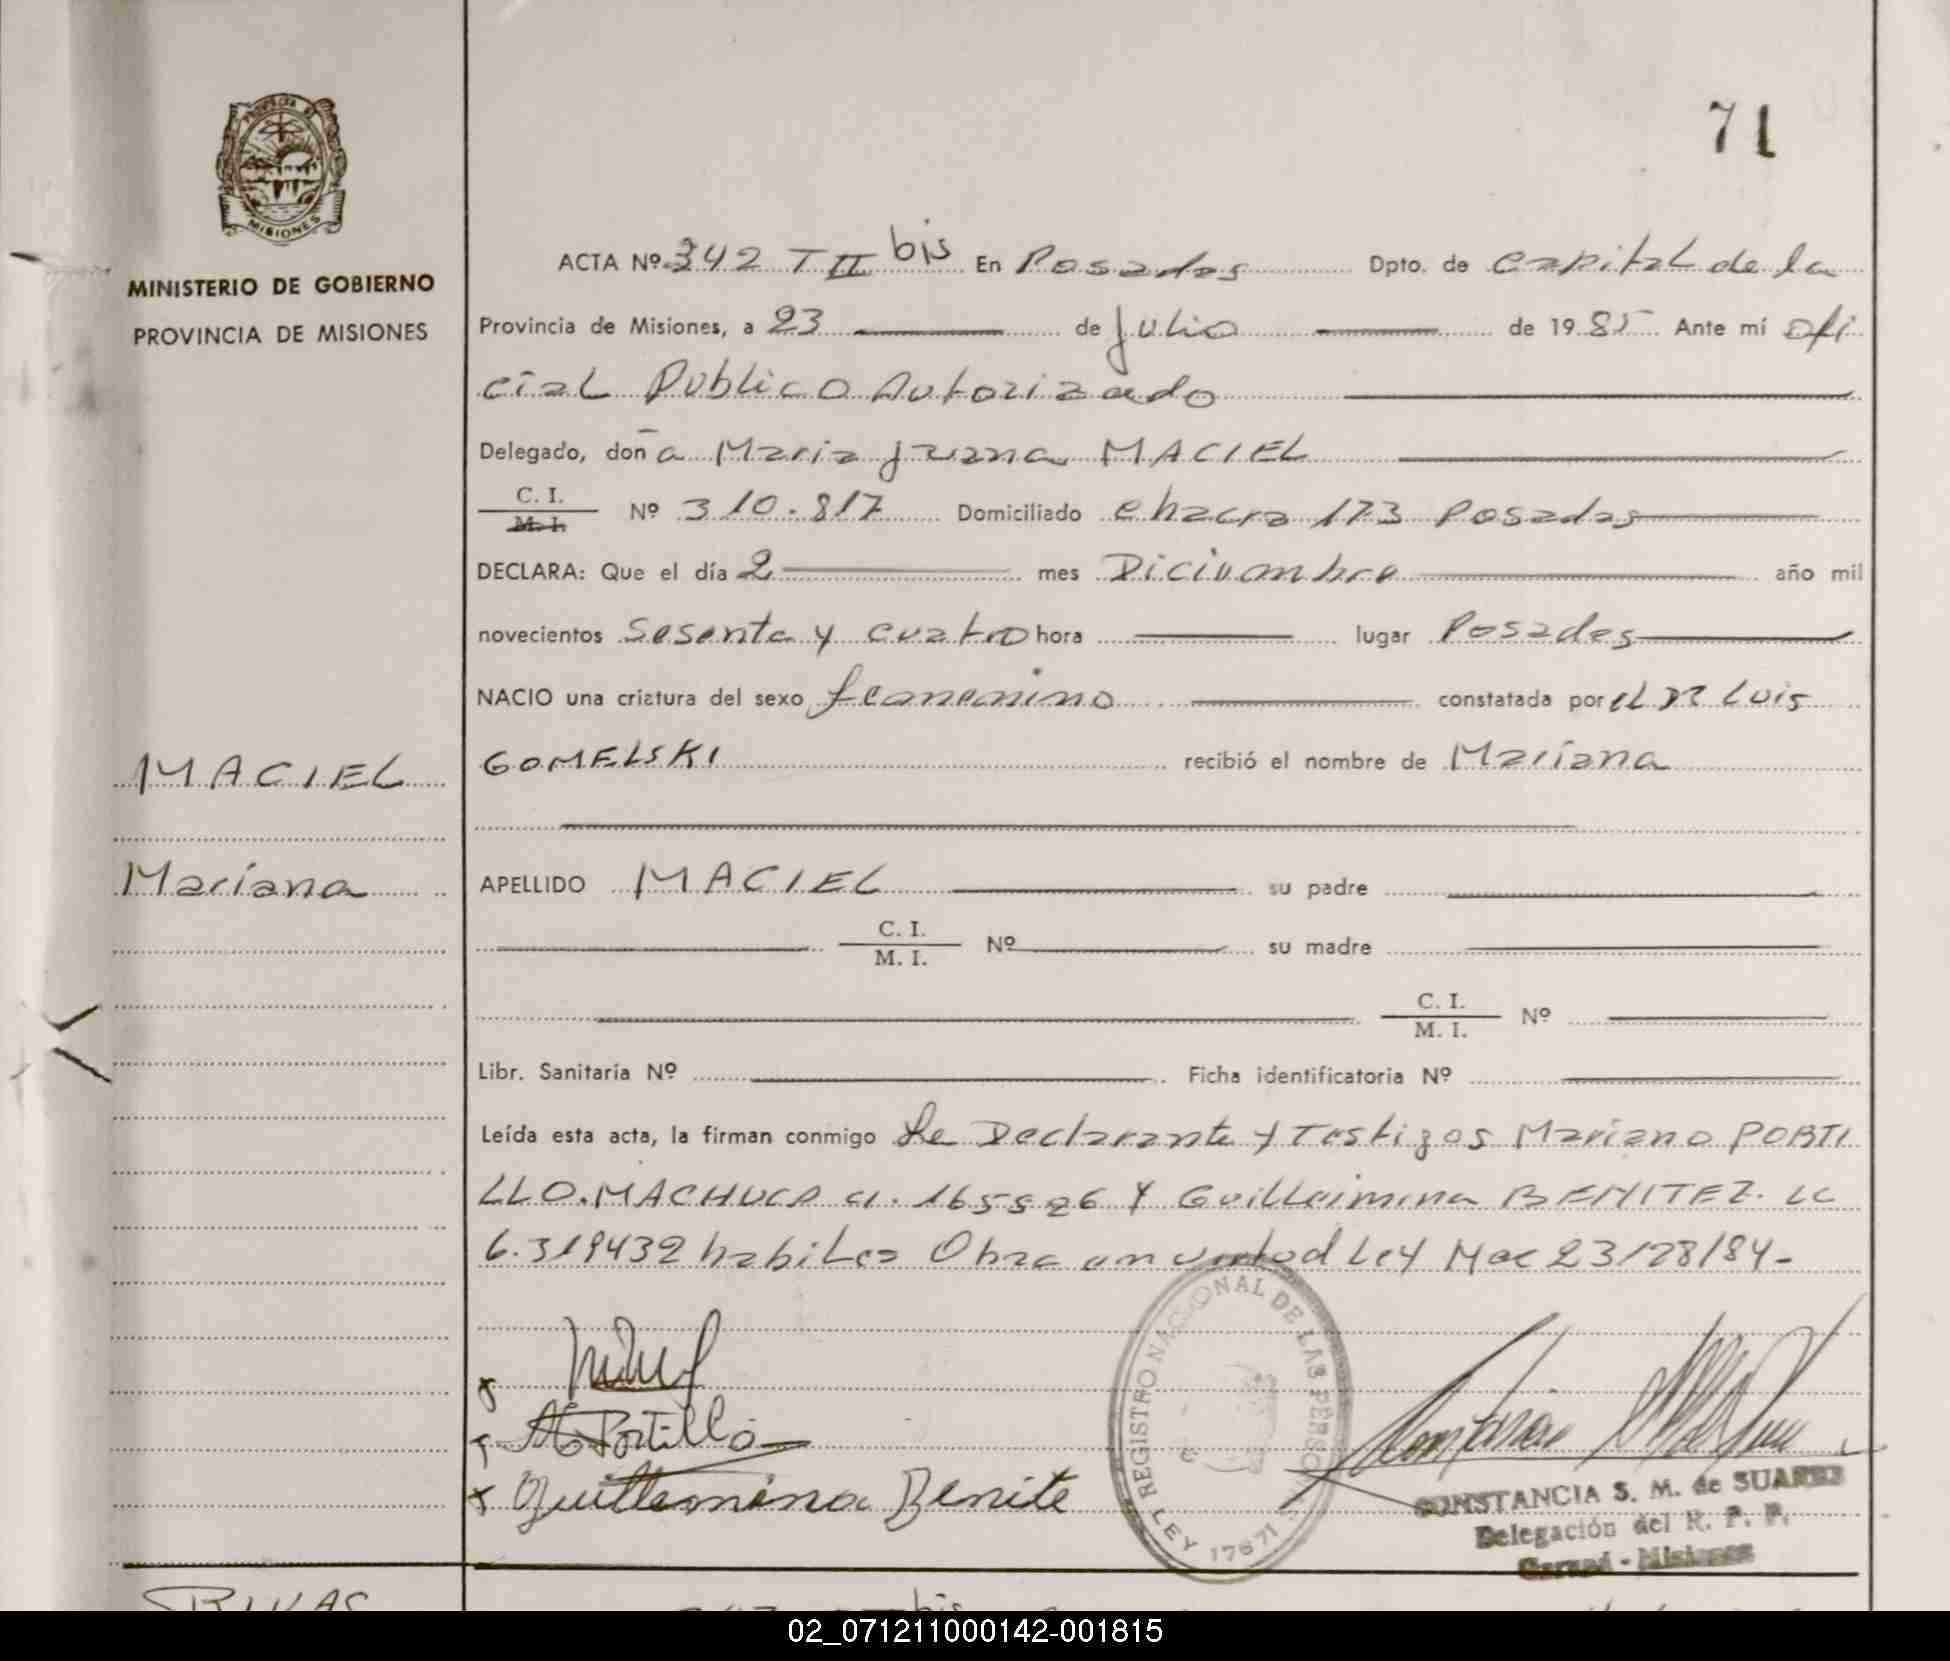 71
PROVINCIA DE
MISIONES
MINISTERIO DE GOBIERNO
PROVINCIA DE MISIONES
ACTA Nº 342 T II bis En Posadas Dpto. de Capital de la
Provincia de Misiones, a 23 de Julio de 1985 Ante mí Ofi
cial Publico Autorizado
Delegado, doña Maria Juana MACIEL
C. I.
M. I.
Nº 310.817 Domiciliado chacra 173 Posadas
DECLARA: Que el día 2 mes Diciembre año mil
novecientos Sesenta y cuatro hora lugar Posadas
NACIO una criatura del sexo femenino constatada por el DR Luis
MACIEL
GOMELSKI recibió el nombre de Mariana
Mariana
APELLIDO MACIEL su padre
C. I.
M. I.
Nº su madre
C. I.
M. I.
Nº
Libr. Sanitaria Nº Ficha identificatoria Nº
Leída esta acta, la firman conmigo La Declarante y Testigos Mariano PORTI
LLO. MACHUCA CI. 165526 Y Guillermina BENITEZ. LC
6.319432 habiles Obra en virtud Ley Nac 23/28/84-
M Portillo
Guillermina Benite
REGISTRO NACIONAL DE LAS PERSONAS
LEY 17671
CONSTANCIA S. M. de SUAREZ
Delegación del R. P. P.
Garupá - Misiones
RIVAS
bis
02_071211000142-001815